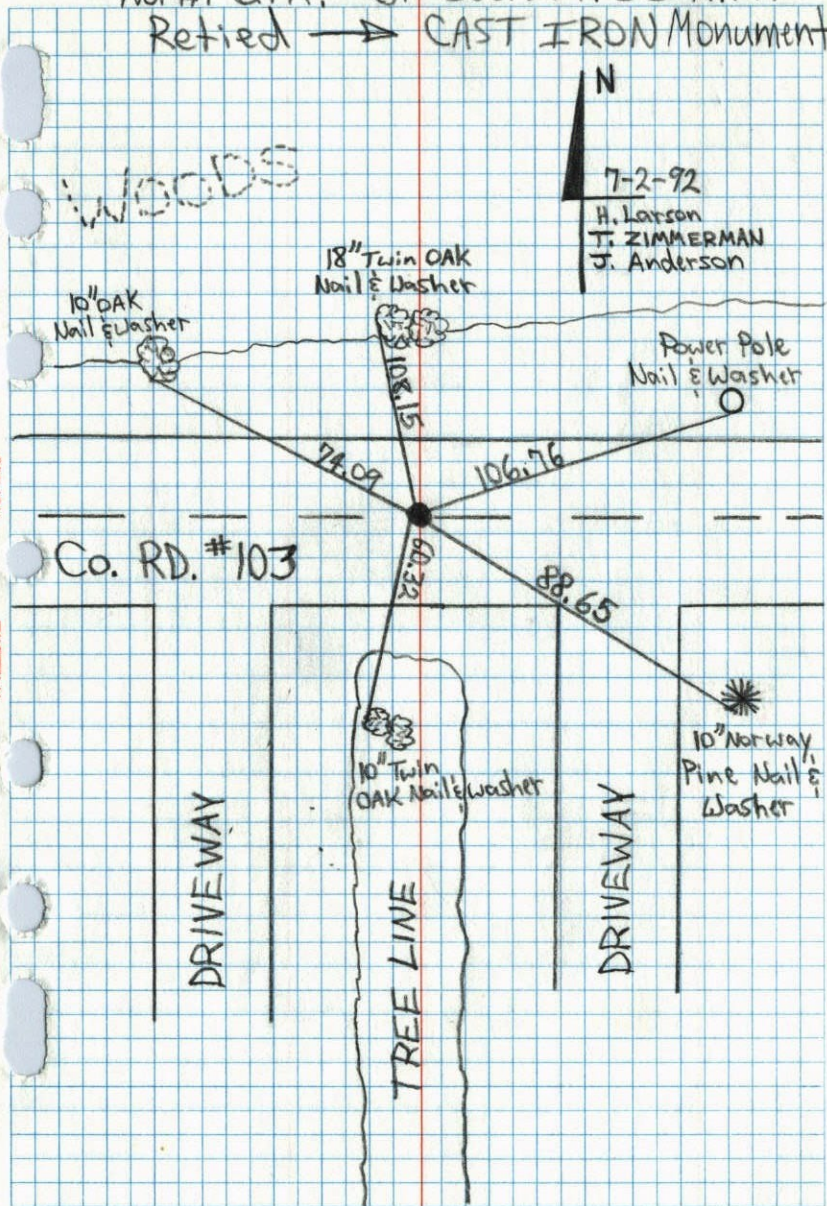 Retied → CAST IRON Monument
N
7-2-92
H. Larson
T. ZIMMERMAN
J. Anderson
WOODS
18" Twin OAK
Nail & Washer
10" OAK
Nail & Washer
Power Pole
Nail & Washer
108.15
74.09
106.76
Co. RD. #103
60.32
88.65
10" Twin
OAK Nail & Washer
10" Norway
Pine Nail &
Washer
DRIVEWAY
TREE LINE
DRIVEWAY